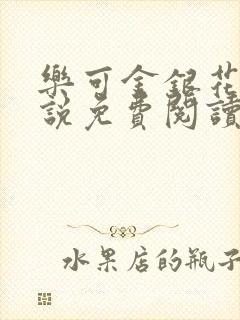 樂可金銀花
說免費閱讀
水果店的瓶子